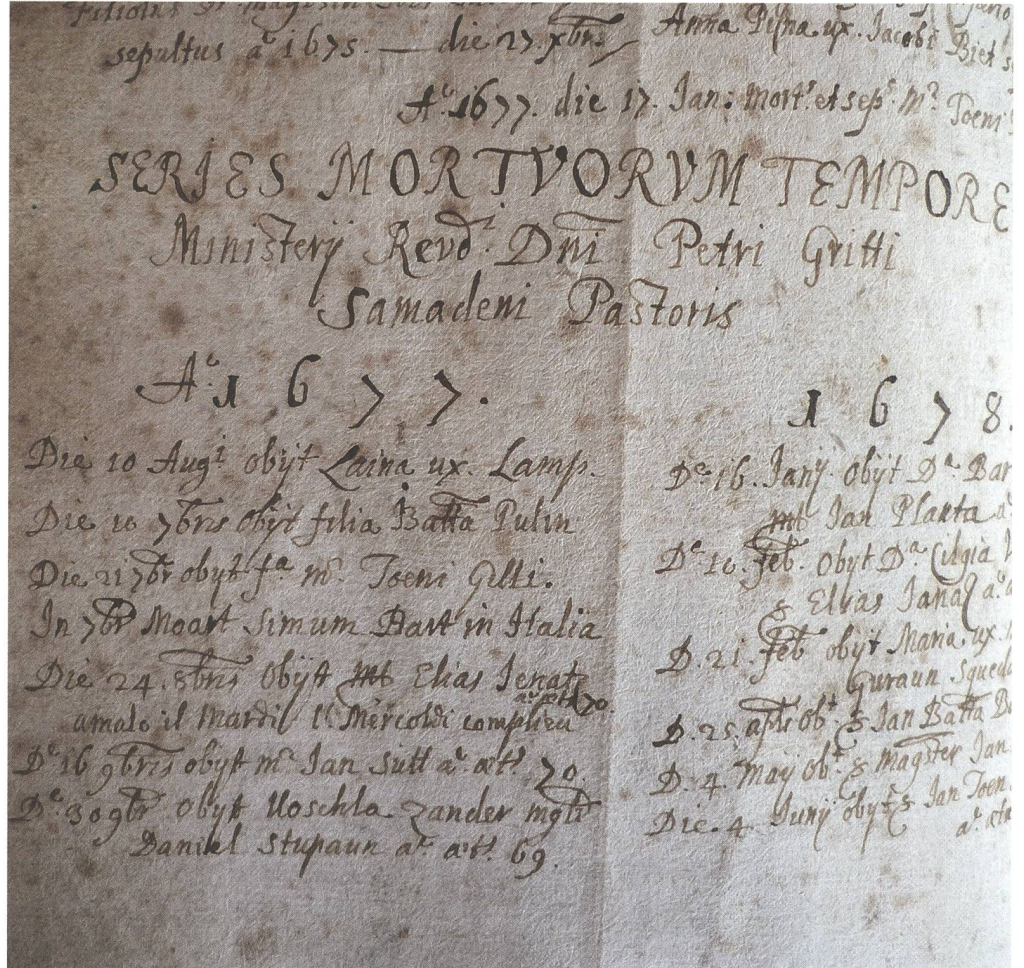 Filiolus
sepultus aº 1675. — die 27. xbris Anna Pisna ux. Jacobi Biet
Aº. 1677. die 17. Jan: Mortˢ et sepˢ. mʳ Toeni
SERIES MORTVORVM TEMPORE
Ministerij Revdⁱ Dni Petri Gritti
Samadeni Pastoris
Aº 1677.
Die 10 Augⁱ obijt Laina ux. Lamp.
Die 10 7bris obijt filia Batta Pulin
Die 21 7br obijt fᵃ mʳ Toeni Gilli.
In 7br Moart Simum Bart in Italia
Die 24. 8bris obijt Elias Jenatz
aº ætˢ 70
amalo il Mardi l'Mercoldi complieu
Dᵉ 16 9bris obijt mʳ Jan Sutt aº ætˢ 70.
Dᵉ 30 9br obijt Uoschla Zander mgri
Daniel Stupaun aº ætˢ 69.
1678.
Dᵉ 16. Janij. Obijt Dᵃ Bar
Jan Planta
Dᵉ 10. feb. Obijt Dᵃ Cilgia
Elias Janaz
D. 21. feb obijt Maria ux
Guraun
D. 25. apls obᵗ Jan Batta
D. 4. May obᵗ magster Jan
Die. 4. Junij obijt Jan Toen